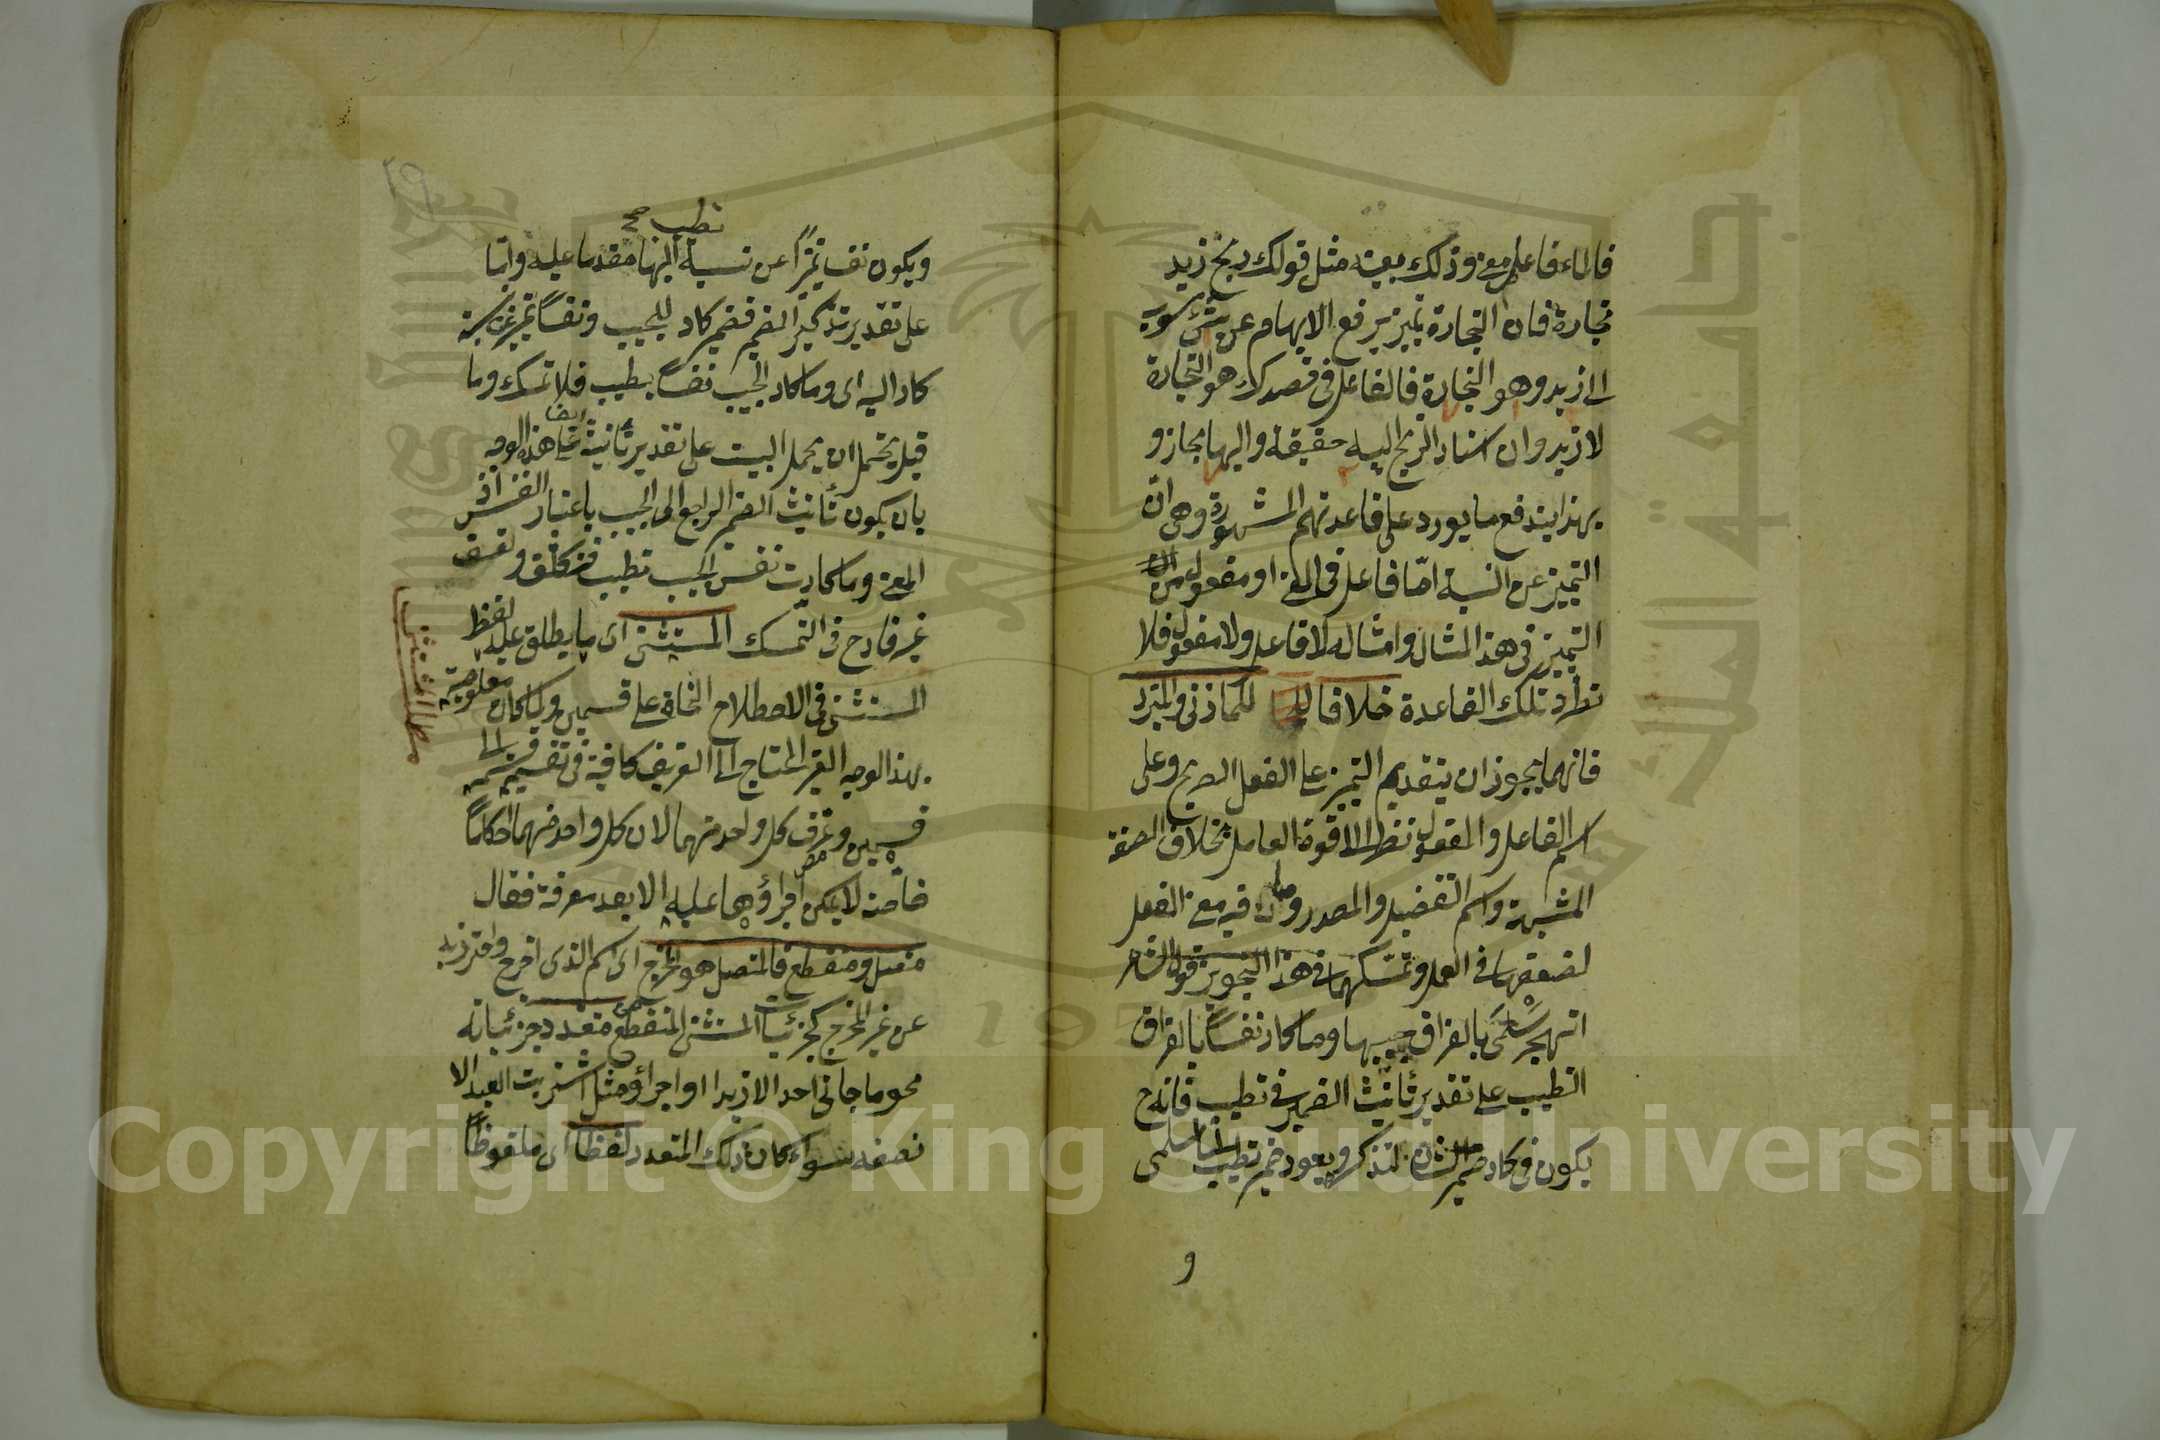 فالماء فاعل معنى وذلك بعينه مثل قولك ربح زيد
تجارة فان التجارة تميز يرفع الابهام عن شئ منسوب
الى زيد وهو التجارة فالفاعل فى قصدك هو التجارة
لا زيد وان اسناد الربح اليه حقيقة واليها مجاز و
بهذا يندفع ما يورد على قاعدتهم المشهورة وهى انّ
التميز عن النسبة امّا فاعل فى المعنى او مفعول من
التميز فى هذا المثال وامثاله لا فاعل ولا مفعول فلا
تطّرد تلك القاعدة خلافا للمازنى والمبرد
فانهما يجوزان يتقديم التميز على الفعل الصريح وعلى
اسم الفاعل والمفعول نظرا الى قوة العامل بخلاف الصفة
المشبهة واسم التفضيل والمصدر وما فيه معنى الفعل
لضعفها فى العمل وتمسكهما فى هذا التجويز قول الشاعر
اتهجر سلمى بالفراق حبيبها وما كاد نفسا بالفراق
تطيب على تقدير تأنيث الضمير فى تطيب فانه ح
يكون فى كاد ضمير الشان لتذكيره ويعود ضمير تطيب الى سلمى
و
تطيب صح
ويكون نفسا تميزًا عن نسبة اليها مقدما عليه وامّا
على تقدير تذكير الضمير فضمير كاد للحبيب ونفساً تميز عن نسبة
كاد اليه اى وما كاد الحبيب نفساً يطيب فلا تمسك وما
ايضا
قيل يحتمل ان يحمل البيت على تقدير تأنيث على هذا الوجه
بان يكون تأنيث الضمير الراجع الى الحبيب باعتبار النفس اذ
المعنى وما كادت نفس الحبيب تطيب فتكلف وتعسف
غير قادح فى التمسك المستثنى اى ما يطلق عليه لفظ
المستثنى فى الاصطلاح النحاة على قسمين ولما كان معلومية
بهذا الوجه الغير المحتاج الى التعريف كافية فى تقسيمه قسمه الى
قسمين وعرف كل واحد منهما لان كل واحد منهما احكاماً
خاصة لا يمكن اجراؤها عليه الا بعد معرفة فقال
متصل ومنقطع فالمتصل هو المخرج اى اسم الذى اخرج واحترز به
عن غير المخرج كجزئيات المستثنى المنقطع عن متعدد جزئياته
نحو ما جانى احد الا زيدا او اجزاؤه مثل اشتريت العبد الا
نصفه سواء كان ذلك المتعدد لفظاً اى ملفوظاً
مطلب المستثنى
Copyright © King Saud University